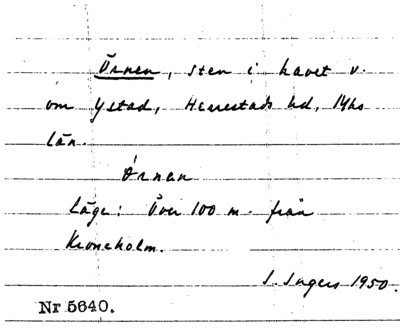 Örnen, sten i havet v.
om Ystad, Herrestads hd, Mhs
län.
Örnen
Läge: Över 100 m från
Kroneholm.
S. Ingers 1950.
Nr 5640.